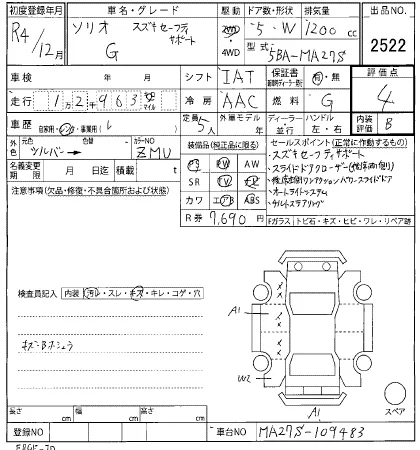 初度登録年月 車名・グレード 駆動 ドア数・形状 排気量 出品NO.
R4/12月 ソリオ スズキセーフティサポート 2WD 5・W 1200cc 2522
G ・4WD 型式 5BA-MA27S
車検 年 月 シフト IAT 保証書 有・無 評価点
走行 1万2千963 km マイル 冷房 AAC 燃料 G 4
車歴 自家用・レンタ・事業用( ) 定員 5人 外車モデル年 ディーラー・並行 ハンドル 左・右 内装評価 B
外色 元色 シルバー 色替 カラーNO ZMU 装備品(純正品に限る) セールスポイント(正常に作動するもの)
名義変更期限 月 日迄 積載 t PS PW AW ・スズキセーフティサポート
注意事項(欠品・修復・不具合箇所および状態) SR TV ・スライドドアクローザー(後席両側)
カワ エアB ABS ・後席左側ワンアクションパワースライドドア
・オートライトシステム
R券 7,690円 ・チルトステアリング
Fガラス トビ石・キズ・ヒビ・ワレ・リペア跡
検査員記入 内装 汚レ・スレ・キズ・キレ・コゲ・穴
A1
キズ・
W2
A1
スペア
長さ cm 幅 cm 高さ cm
登録NO 車台NO MA27S-109483